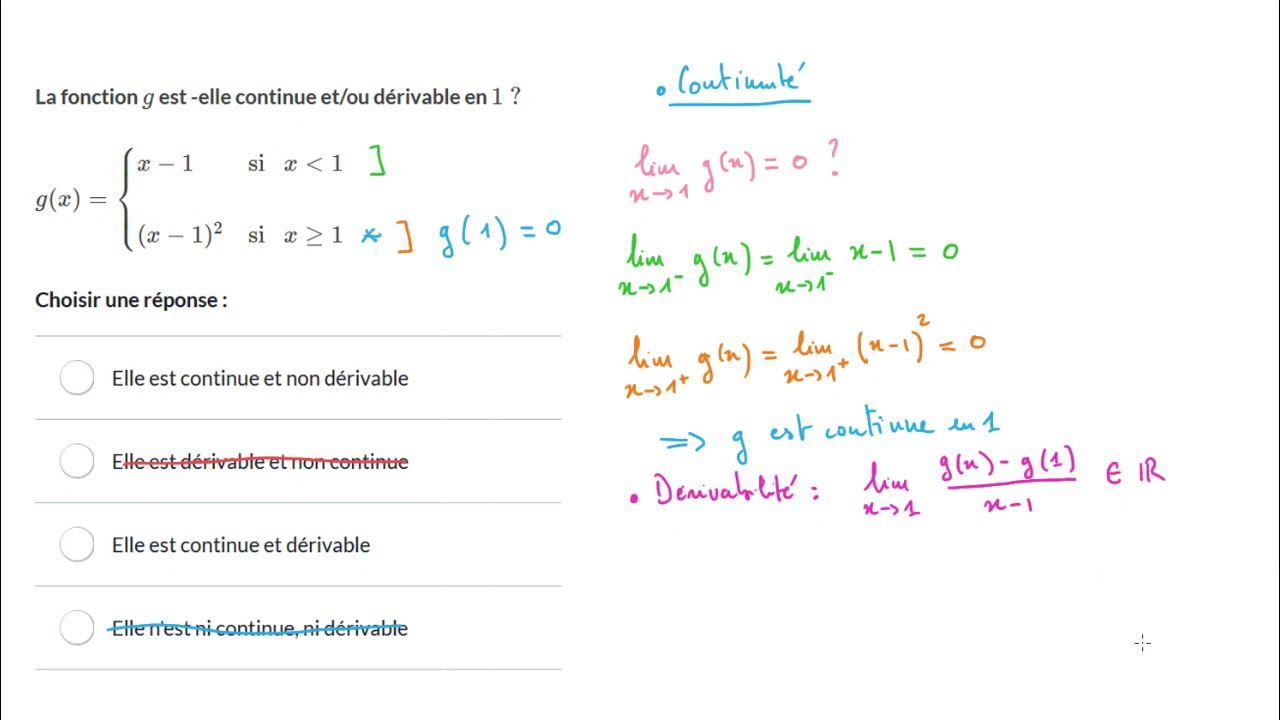 La fonction g est -elle continue et/ou dérivable en 1 ?
g(x) = { x − 1 si x < 1 ]
(x − 1)² si x ≥ 1 * ] g(1) = 0
Choisir une réponse :
Elle est continue et non dérivable
Elle est dérivable et non continue
Elle est continue et dérivable
Elle n'est ni continue, ni dérivable
• Continuité
lim x→1 g(x) = 0 ?
lim x→1⁻ g(x) = lim x→1⁻ x−1 = 0
lim x→1⁺ g(x) = lim x→1⁺ (x−1)² = 0
⇒ g est continue en 1
• Dérivabilité : lim x→1 (g(x) − g(1))/(x−1) ∈ ℝ